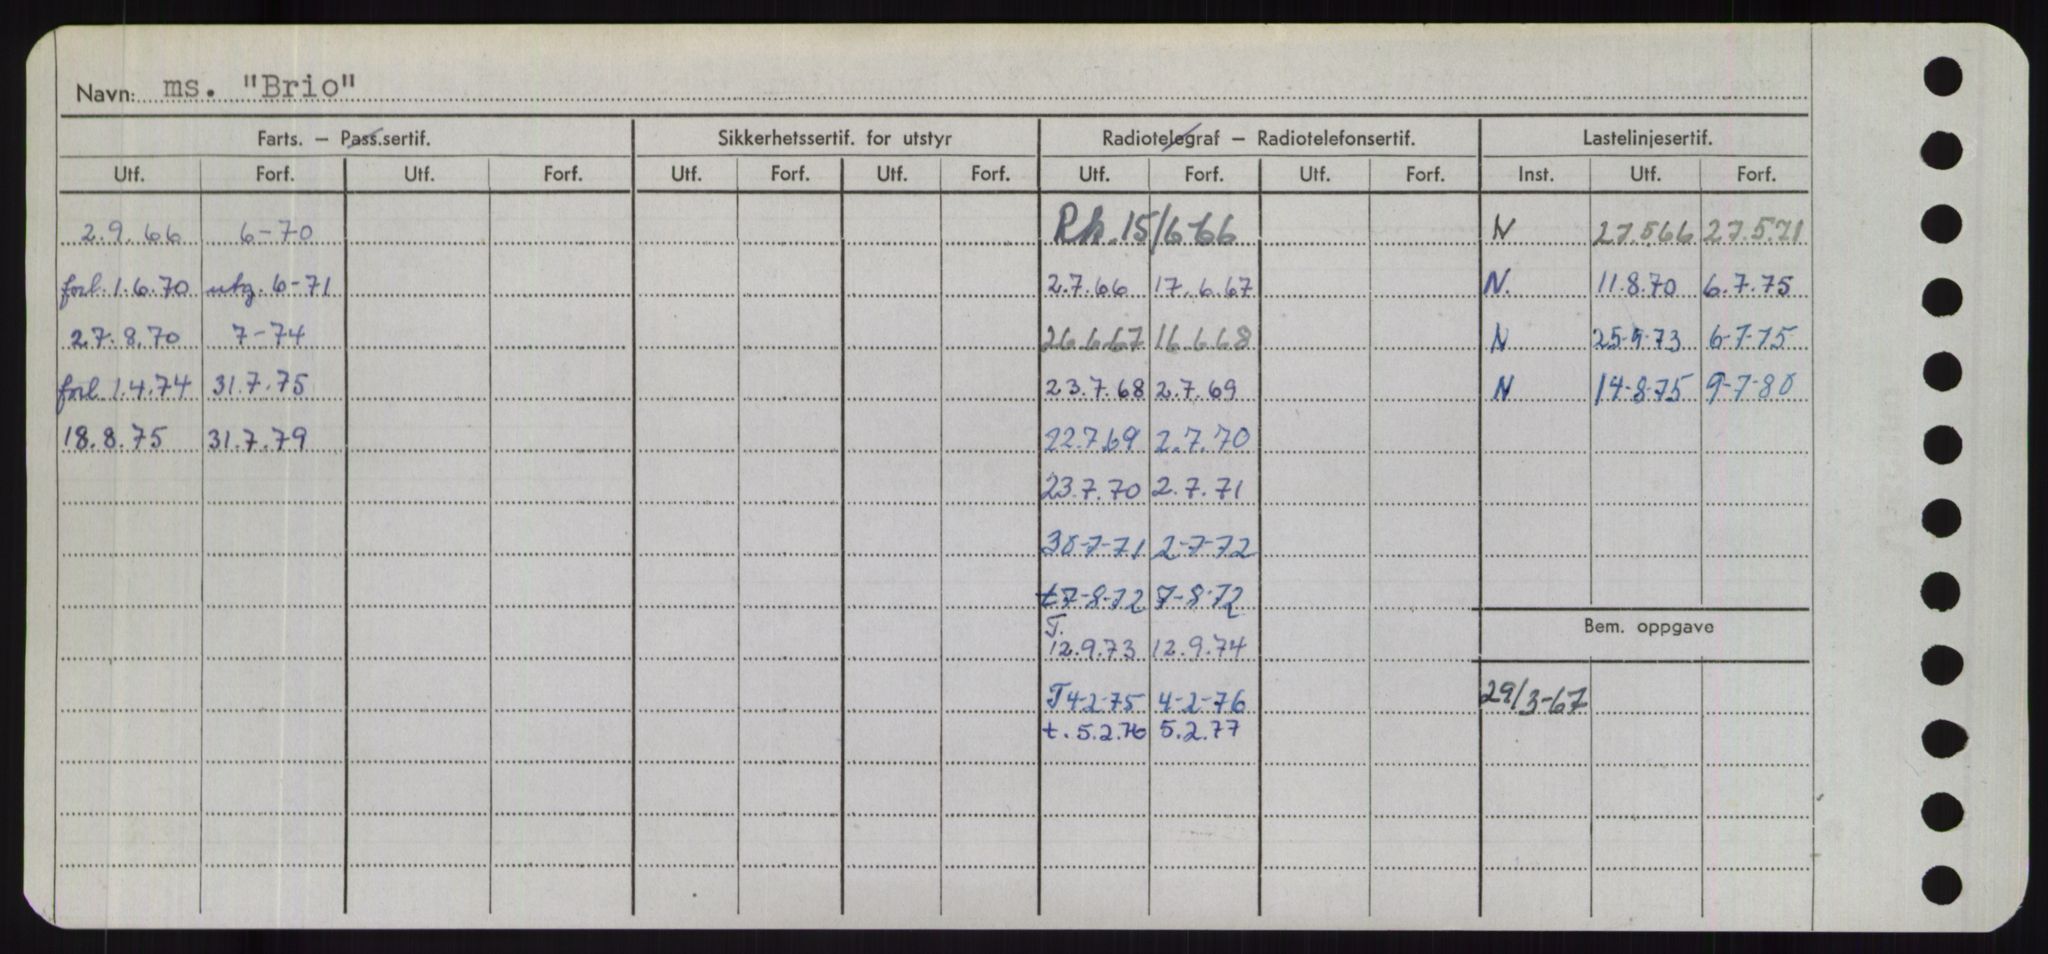 Navn: ms. "Brio"
Farts. – Pass.sertif. Sikkerhetssertif. for utstyr Radiotelegraf – Radiotelefonsertif. Lastelinjesertif.
Utf. Forf. Utf. Forf. Utf. Forf. Utf. Forf. Utf. Forf. Utf. Forf. Inst. Utf. Forf.
2.9.66 6-70 Rk. 15/6-66 N 27.566 27.5.71
forl. 1.6.70 utg. 6-71 2.7.66 17.6.67 N. 11.8.70 6.7.75
27.8.70 7-74 26.6.67 16.6.68 N 25-9-73 6-7-75
forl 1.4.74 31.7.75 23.7.68 2.7.69 N 14-8-75 9-7-80
18.8.75 31.7.79 22.7.69 2.7.70
23.7.70 2.7.71
30-7-71 2-7-72
t7-8-72 7-8-72
Bem. oppgave
T.
12.9.73 12.9.74
T4-2-75 4-2-76 29/3-67
t. 5.2.76 5.2.77